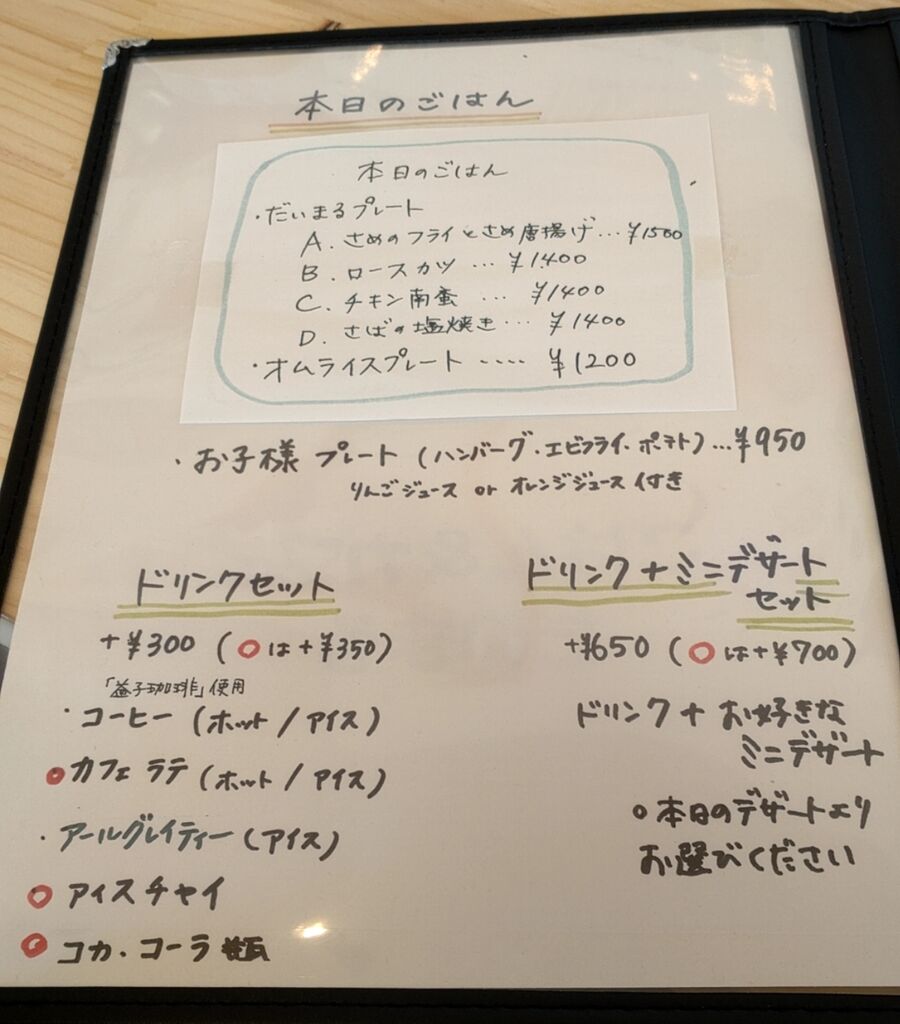 本日のごはん
本日のごはん
・だいまるプレート
A. さめのフライとさめ唐揚げ…¥1500
B. ロースカツ …¥1400
C. チキン南蛮 … ¥1400
D. さばの塩焼き… ¥1400
・オムライスプレート ‥‥ ¥1200
・お子様プレート (ハンバーグ・エビフライ・ポテト)…¥950
りんごジュース or オレンジジュース付き
ドリンクセット
+¥300 (○は+¥350)
「益子珈琲」使用
・コーヒー (ホット / アイス)
○カフェラテ (ホット / アイス)
・アールグレイティー (アイス)
○ アイスチャイ
○ コカ・コーラ 瓶
ドリンク+ミニデザート
セット
+¥650 (○は+¥700)
ドリンク+お好きな
ミニデザート
○本日のデザートより
お選びください